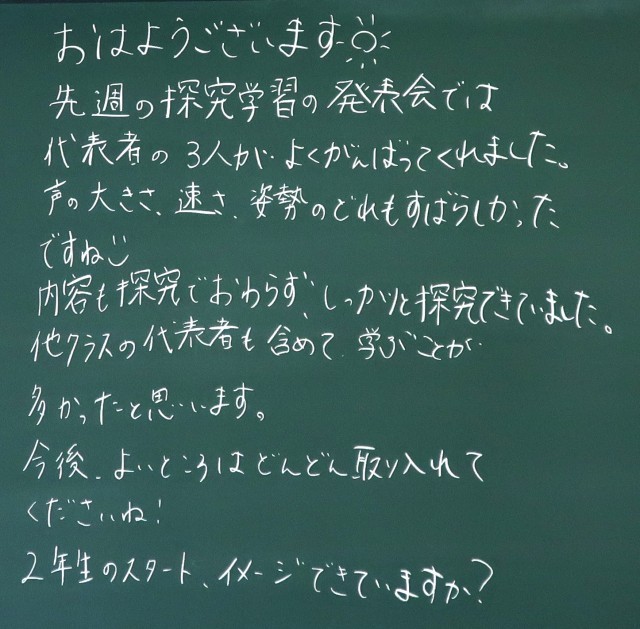 おはようございます
先週の探究学習の発表会では
代表者の3人が、よくがんばってくれました。
声の大きさ、速さ、姿勢のどれもすばらしかった
ですね
内容も探究でおわらず、しっかりと探究できていました。
他クラスの代表者も含めて、学ぶことが
多かったと思います。
今後、よいところはどんどん取り入れて
くださいね!
2年生のスタート、イメージできていますか?